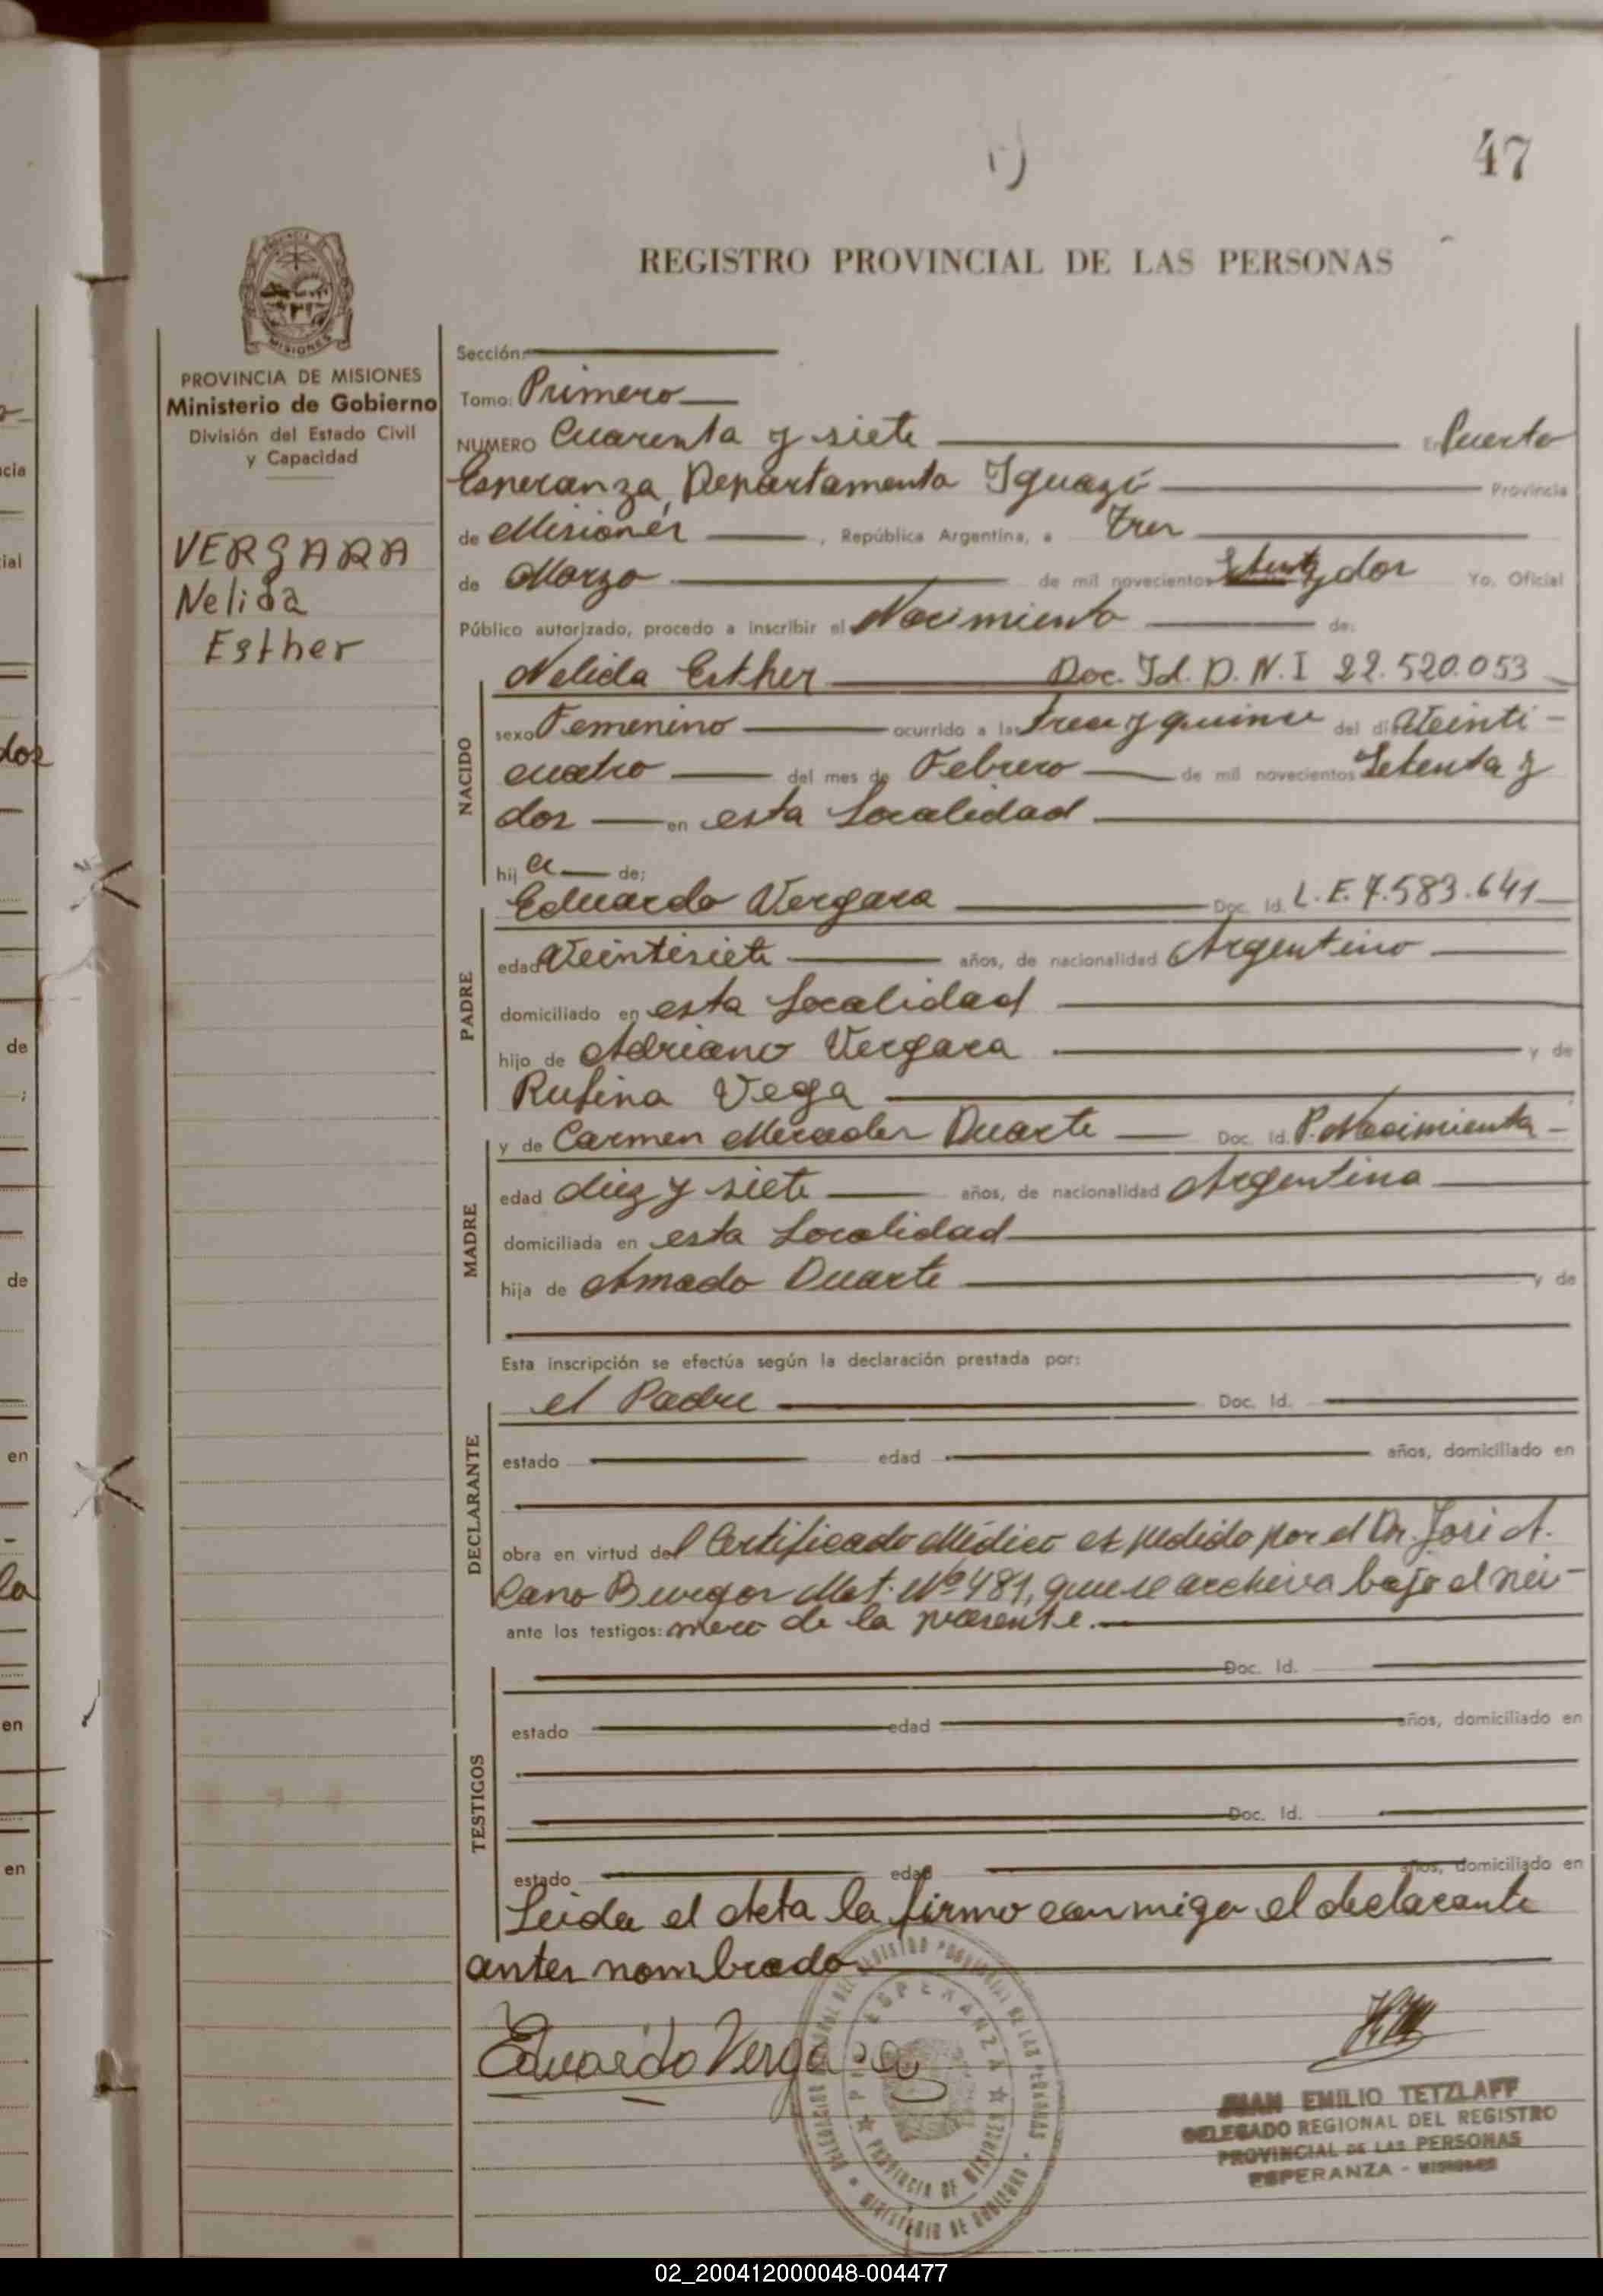 47
REGISTRO PROVINCIAL DE LAS PERSONAS
MISIONES
PROVINCIA DE MISIONES
Ministerio de Gobierno
División del Estado Civil
y Capacidad
VERGARA
Nelida
Esther
Sección:
Tomo: Primero
NUMERO Cuarenta y siete En Puerto
Esperanza, Departamento Iguazú Provincia
de Misiones, República Argentina, a tres
de Marzo de mil novecientos setenta y dos Yo, Oficial
Público autorizado, procedo a inscribir el Nacimiento de:
Nelida Esther Doc. Id. D.N.I 22.520.053
NACIDO
sexo Femenino ocurrido a las trece y quince del día Veinti-
cuatro del mes de Febrero de mil novecientos Setenta y
dos en esta Localidad
hija de:
Eduardo Vergara Doc. Id. L.E. 7.583.641
PADRE
edad Veintisiete años, de nacionalidad Argentino
domiciliado en esta Localidad
hijo de Adriano Vergara y de
Rufina Vega
y de Carmen Mercedes Duarte Doc. Id. P. Nacimiento
MADRE
edad diez y siete años, de nacionalidad Argentina
domiciliada en esta Localidad
hija de Amado Duarte y de
Esta inscripción se efectúa según la declaración prestada por:
el Padre Doc. Id.
DECLARANTE
estado edad años, domiciliado en
obra en virtud del Certificado Médico expedido por el Dr. José A.
Cano Mat. Nº 481, que se archiva bajo el nú-
ante los testigos: mero de la presente.
Doc. Id.
TESTIGOS
estado edad años, domiciliado en
Doc. Id.
estado edad años, domiciliado en
Leida el Acta la firmo conmigo el declarante
antes nombrado
Eduardo Vergara
ESPERANZA
PROVINCIA DE MISIONES
MINISTERIO DE GOBIERNO
JUAN EMILIO TETZLAFF
DELEGADO REGIONAL DEL REGISTRO
PROVINCIAL DE LAS PERSONAS
ESPERANZA - MISIONES
02_200412000048-004477